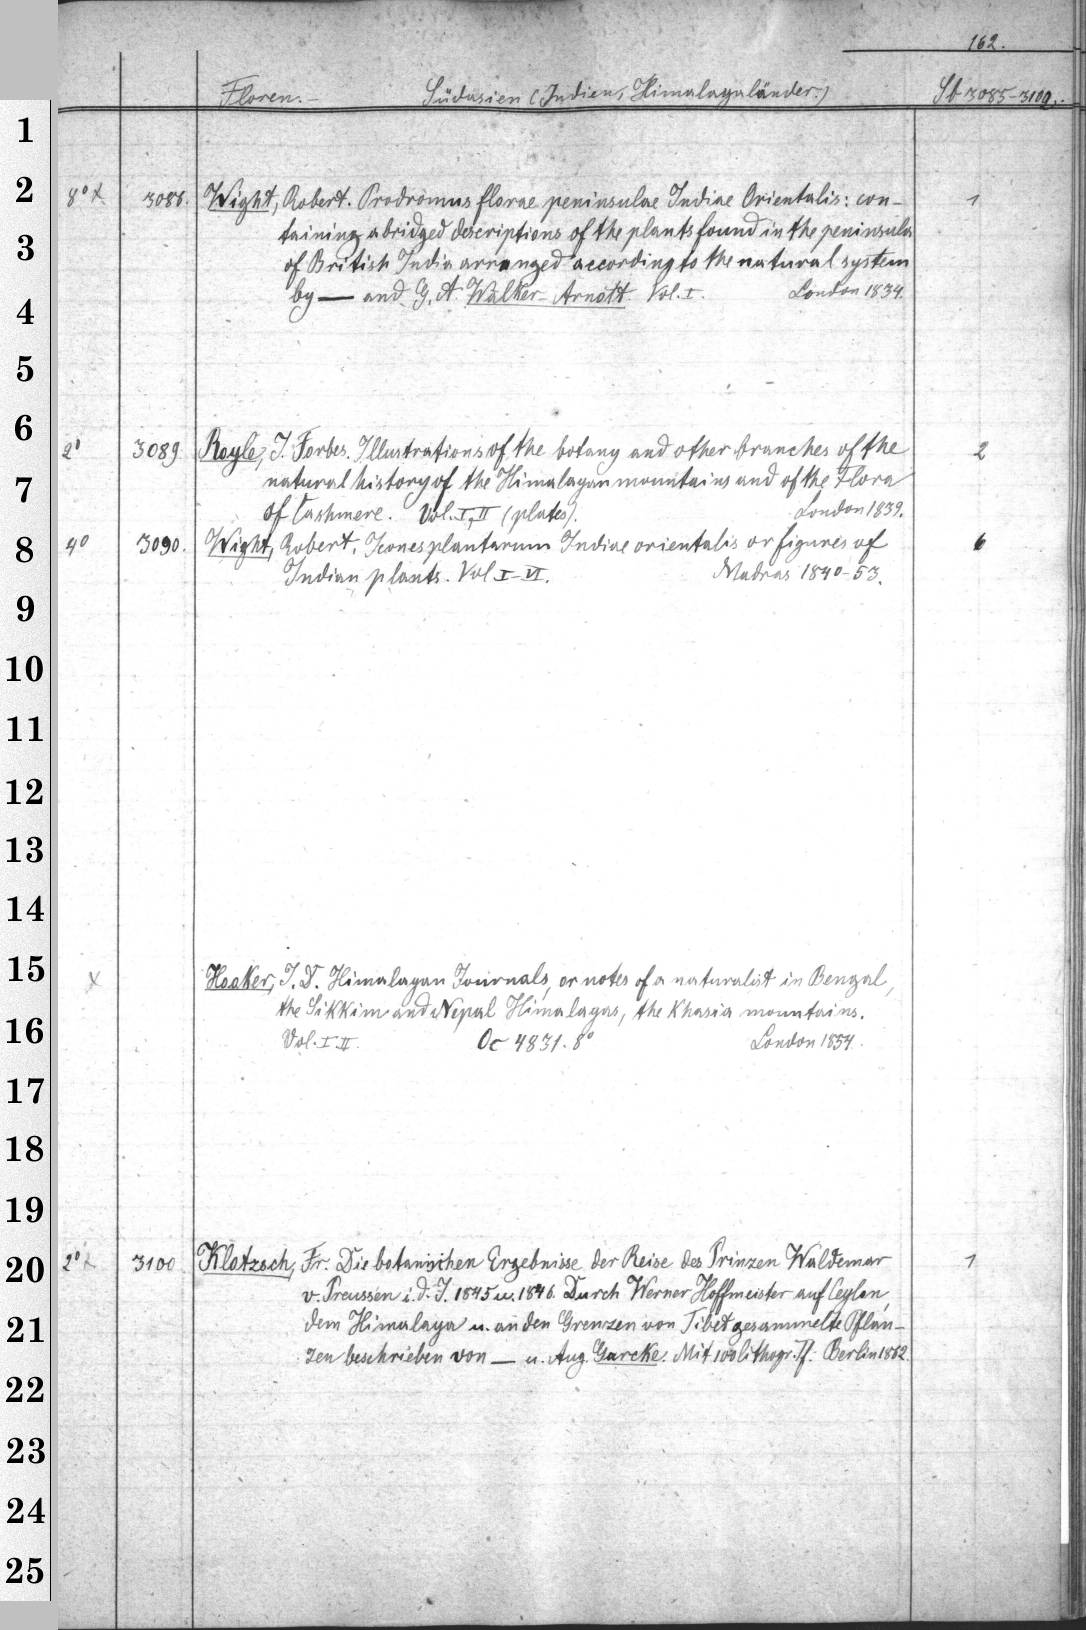 162.
Floren.— Südasien (Indien, Himalayaländer.) Sb 3085–3100.
1
2
3
4
5
6
7
8
9
10
11
12
13
14
15
16
17
18
19
20
21
22
23
24
25
8° x 3086. Wight, Robert. Prodromus florae peninsulae Indiae Orientalis: con- 1
taining abridged descriptions of the plants found in the peninsula
of British India arranged according to the natural system
by — and G. A. Walker-Arnott. Vol. I. London 1834.
2° 3089 Royle, J. Forbes. Illustrations of the botany and other branches of the 2
natural history of the Himalayan mountains and of the Flora
of Cashmere. Vol. I, II (plates). London 1839.
4° 3090. Wight, Robert, Icones plantarum Indiae orientalis or figures of 6
Indian plants. Vol I–VI. Madras 1840–53.
x Hooker, J. D. Himalayan Journals, or notes of a naturalist in Bengal,
the Sikkim and Nepal Himalayas, the Khasia mountains.
Vol. I. II. Oc 4831. 8° London 1854.
2° x 3100 Klotzsch, Fr. Die botanischen Ergebnisse der Reise des Prinzen Waldemar 1
v. Preussen i. d. J. 1845 u. 1846. Durch Werner Hoffmeister auf Ceylon,
dem Himalaya u. an den Grenzen von Tibet gesammelte Pflan-
zen beschrieben von — u. Aug. Garcke. Mit 100 lithogr. Tf. Berlin 1862.